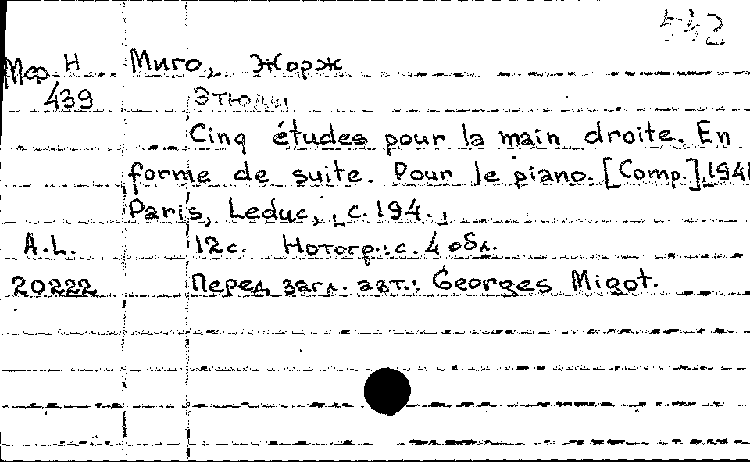 542
Мор. Н Миго, Жорж
439 Этюды
Cinq études pour la main droite. En
forme de suite. Pour le piano. [Comp.] 194
Paris, Leduc, [c. 194.]
A.L. 12 с. Нотогр.: с. 4 обл.
20222 Перед загл. авт.: Georges Migot.